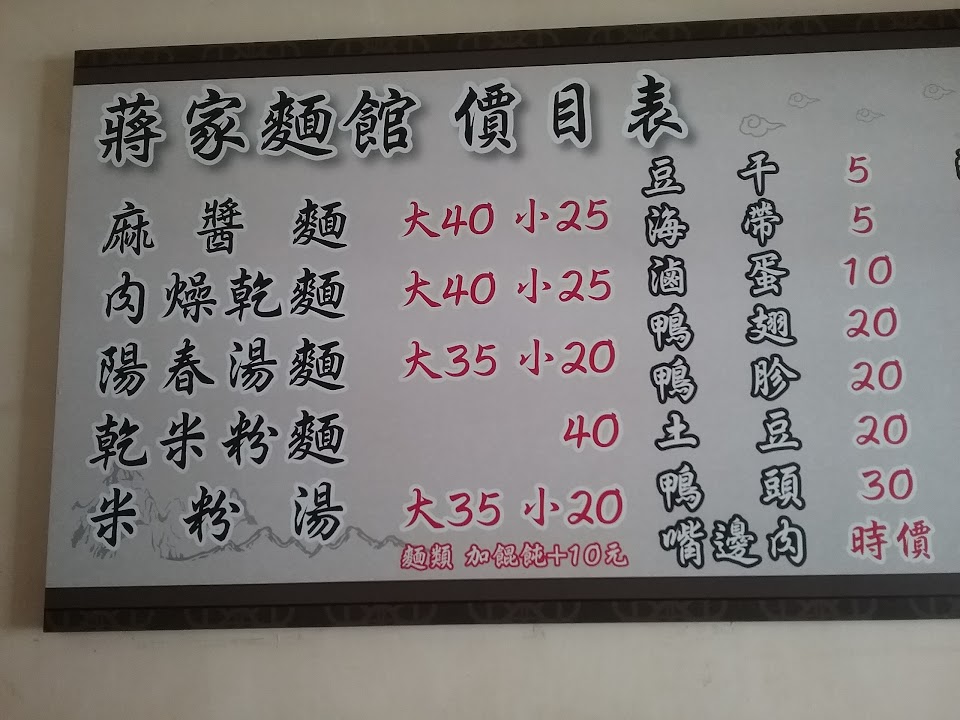 蔣家麵館 價目表
麻醬麵 大40 小25
肉燥乾麵 大40 小25
陽春湯麵 大35 小20
乾米粉麵 40
米粉湯 大35 小20
麵類 加餛飩+10元
豆干 5
海帶 5
滷蛋 10
鴨翅 20
鴨胗 20
土豆 20
鴨頭 30
嘴邊肉 時價